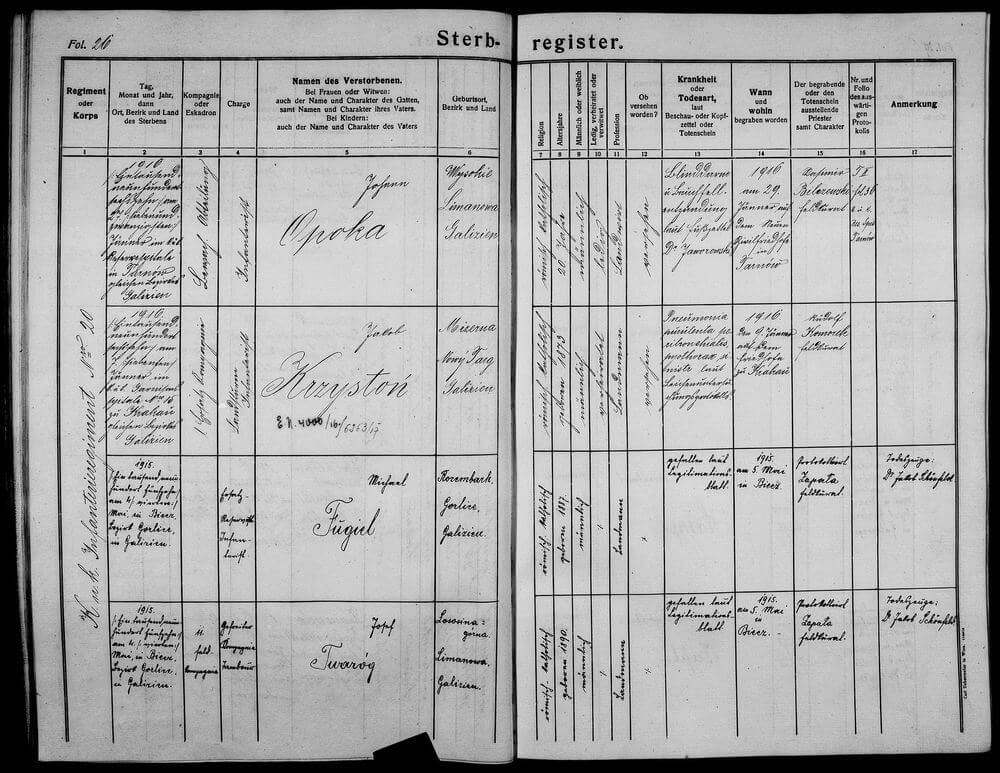 Fol. 26
Sterb-
register.
Regiment
oder
Korps
Tag,
Monat und Jahr,
dann
Ort, Bezirk und Land
des Sterbens
Kompagnie
oder
Eskadron
Charge
Namen des Verstorbenen.
Bei Frauen oder Witwen:
auch der Name und Charakter des Gatten,
samt Namen und Charakter ihres Vaters.
Bei Kindern:
auch der Name und Charakter des Vaters
Geburtsort,
Bezirk und Land
Religion
Altersjahre
Männlich oder weiblich
Ledig, verheiratet oder
verwitwet
Profession
Ob
versehen
worden?
Krankheit
oder
Todesart,
laut
Beschau- oder Kopf-
zettel oder
Totenschein
Wann
und
wohin
begraben worden
Der begrabende
oder den
Totenschein
ausstellende
Priester
samt Charakter
Nr. und
Folio
des ausw­ärti-
gen
Proto-
kolls
Anmerkung
1
2
3
4
5
6
7
8
9
10
11
12
13
14
15
16
17
K.u.k. Infanterieregiment Nro 20
1916
/Eintausend
neunhundert
sechzehn/ am
Jänner im k.k.
Reservespitale
in Tarnów
gleichen Bezirkes
Galizien
Abteilung
Infanterist
Johann
Opoka
Wysokie
Limanowa
Galizien
römisch katholisch
20 Jahre
männlich
ledig
Landwirt
versehen
Blinddarm
u Bauchfell-
entzündung
laut
Dr Jaworowski
1916
am 29.
Jänner auf
dem Neuen
in
Tarnów
Kasimir
Feldkurat
Tarnów
1916
/Eintausend
neunhundert
sechzehn/ am
7/ siebenten/
Jänner im
k.u.k. Garnisons
spitale Nro 15
zu Krakau
gleichen Bezirkes
Galizien
1 Ersatz Kompagnie
Landsturm
Infanterist
Jakob
Krzystoń
E N. 4000/16/6363/17
Mizerna
Nowy Targ
Galizien
römisch katholisch
geboren 1873
männlich
verheiratet
Landmann
versehen
Pneumonia
purulenta
pyothorax
laut
1916
den 9 Jänner
auf dem
Friedhofe
zu Krakau
Rudolf
Feldkurat
1915.
/Ein tausend neun
hundert fünfzehn/
am 4./ vierten/
Mai, in Biecz,
Bezirk Gorlice,
in Galizien.
Ersatz-
Reservist
Infan-
terist
Michael
Fugiel
Rozembark,
Gorlice,
Galizien.
römisch-katholisch
geboren 1887.
männlich
Landmann
gefallen laut
Legitimations-
blatt.
1915.
am 5. Mai
in Biecz.
Protokolliert
Zapala
Feldkurat.
Todeszeuge:
Dr Jakob Schönfeld.
1915.
/Ein tausend neun
hundert fünfzehn/
am 4./ vierten/
Mai, in Biecz,
Bezirk Gorlice,
in Galizien.
11
Feld
Kompagnie
Gefreiter
Kompagnie
Josef
Twaróg
Łososina-
górna
Limanowa,
Galizien.
römisch-katholisch
geboren 1890.
männlich
Landmann
gefallen laut
Legitimations-
blatt.
1915.
am 5. Mai
in
Biecz.
Protokolliert
Zapala
Feldkurat.
Todeszeuge:
Dr Jakob Schönfeld